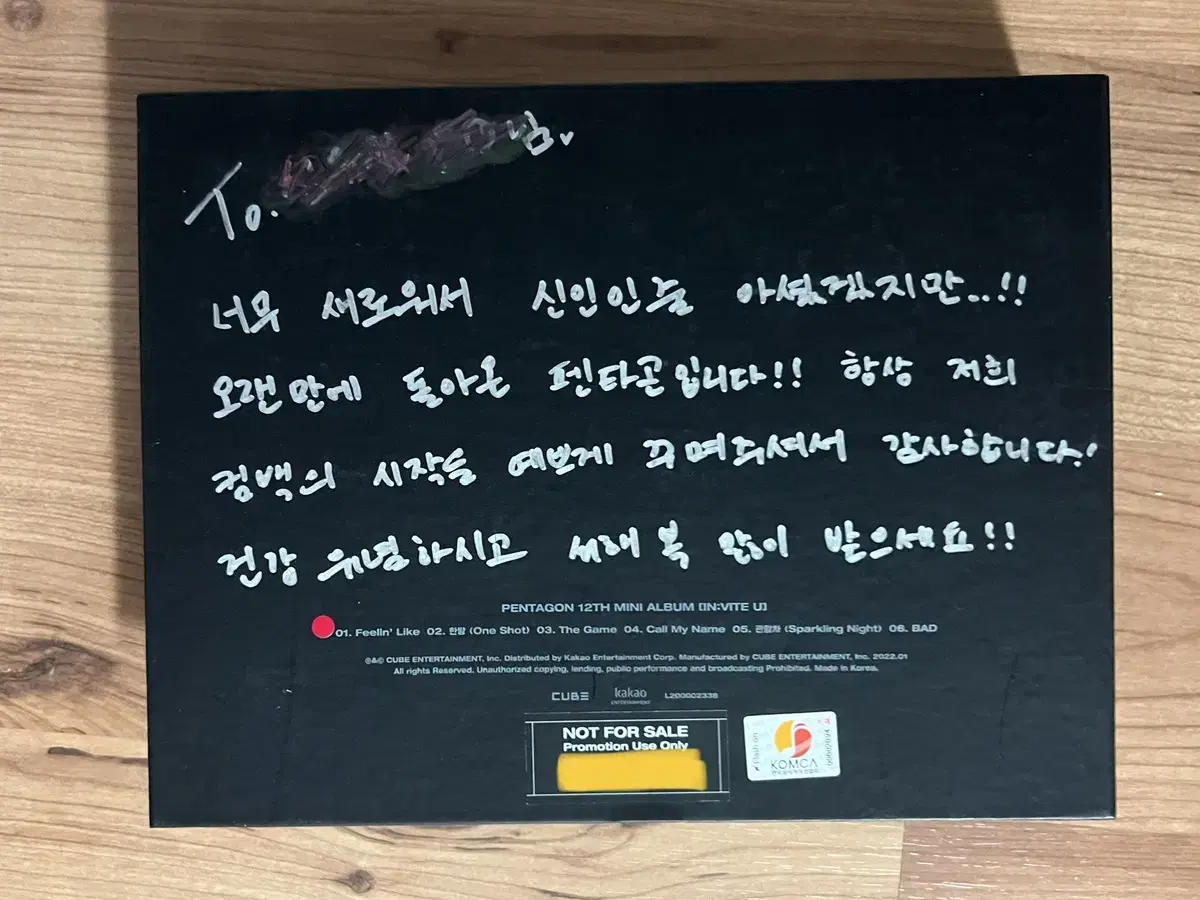 To. 님
너무 새로워서 신인인줄 아셨겠지만..!!
오랜만에 돌아온 펜타곤입니다!! 항상 저희
컴백의 시작을 예쁘게 꾸며주셔서 감사합니다!
건강 유념하시고 새해 복 많이 받으세요!!
PENTAGON 12TH MINI ALBUM [IN:VITE U]
01. Feelin' Like 02. 한탕 (One Shot) 03. The Game 04. Call My Name 05. 관람차 (Sparkling Night) 06. BAD
℗&© CUBE ENTERTAINMENT, Inc. Distributed by Kakao Entertainment Corp. Manufactured by CUBE ENTERTAINMENT, Inc. 2022.01
All rights Reserved. Unauthorized copying, lending, public performance and broadcasting Prohibited. Made in Korea.
CUBE kakao ENTERTAINMENT L200002338
NOT FOR SALE
Promotion Use Only
KOMCA
한국음악저작권협회